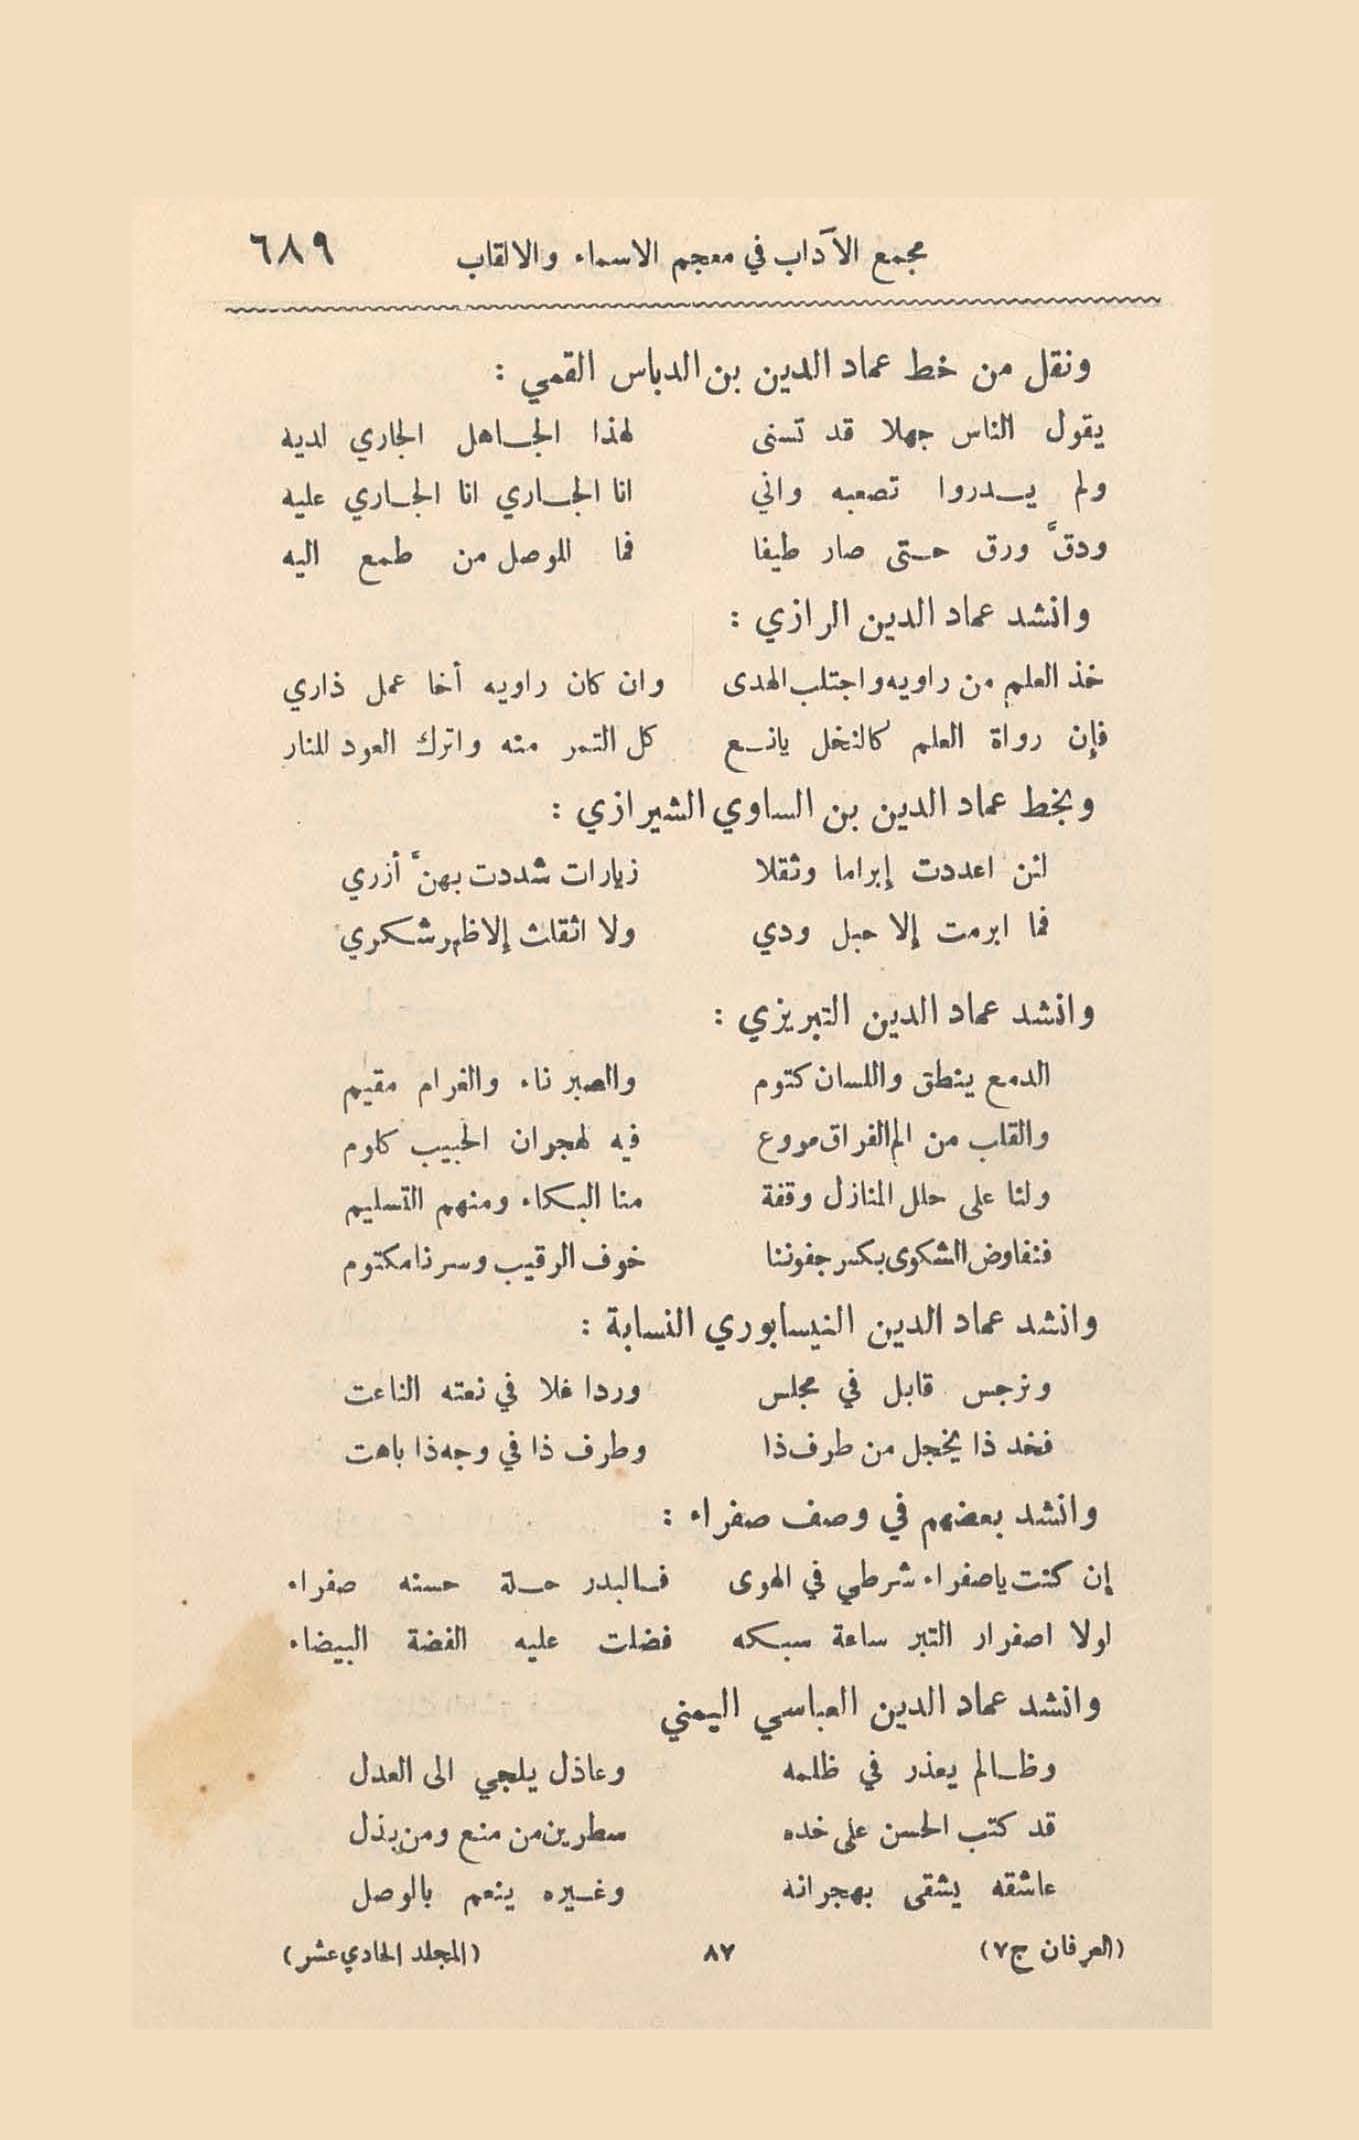 مجمع الآداب في معجم الاسماء والالقاب ٦٨٩
ونقل من خط عماد الدين بن الدباس القمي :
يقول الناس جهلا قد تسنى لهذا الجاهل الجاري لديه
ولم يدروا تصعبه واني انا الجاري انا الجاري عليه
ودقَّ ورق حتى صار طيفا فما للوصل من طمع اليه
وانشد عماد الدين الرازي :
خذ العلم من راويه واجتلب الهدى وان كان راويه أخا عمل ذاري
فإن رواة العلم كالنخل يانع كل التمر منه واترك العود للنار
وبخط عماد الدين بن الساوي الشيرازي :
لئن اعددت إبراما وثقلا زيارات شددت بهنَّ أزري
فما ابرمت إلا حبل ودي ولا اثقلت إلا ظهر شكري
وانشد عماد الدين التبريزي :
الدمع ينطق واللسان كتوم والصبر ناء والغرام مقيم
والقلب من الم الفراق مروع فيه لهجران الحبيب كلوم
ولنا على حلل المنازل وقفة منا البكاء ومنهم التسليم
فنفاوض الشكوى بكسر جفوننا خوف الرقيب وسرنا مكتوم
وانشد عماد الدين النيسابوري النسابة :
ونرجس قابل في مجلس وردا غلا في نعته الناعت
فخد ذا يخجل من طرف ذا وطرف ذا في وجه ذا باهت
وانشد بعضهم في وصف صفراء :
إن كنت يا صفراء شرطي في الهوى فالبدر حلة حسنه صفراء
لولا اصفرار التبر ساعة سبكه فضلت عليه الفضة البيضاء
وانشد عماد الدين العباسي اليمني
وظالم يعذر في ظلمه وعاذل يلجي الى العدل
قد كتب الحسن على خده سطرين من منع ومن بذل
عاشقه يشقى بهجرانه وغيره ينعم بالوصل
(العرفان ج٧) ٨٧ (المجلد الحادي عشر)